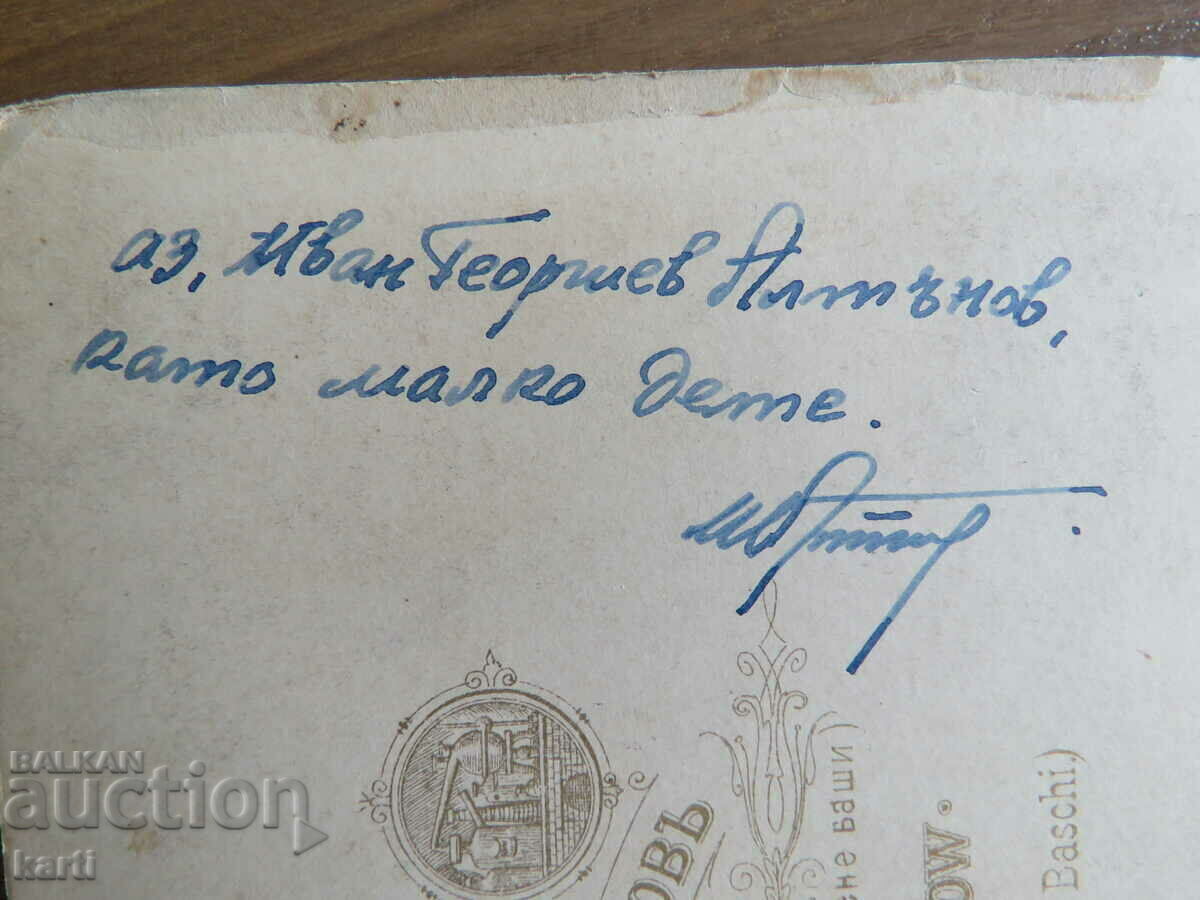 аз, Иван Георгиев Алтънов,
като малко дете.
BALKAN
auction
karti
ОВЪ
сне баши)
OW.
Baschi.)